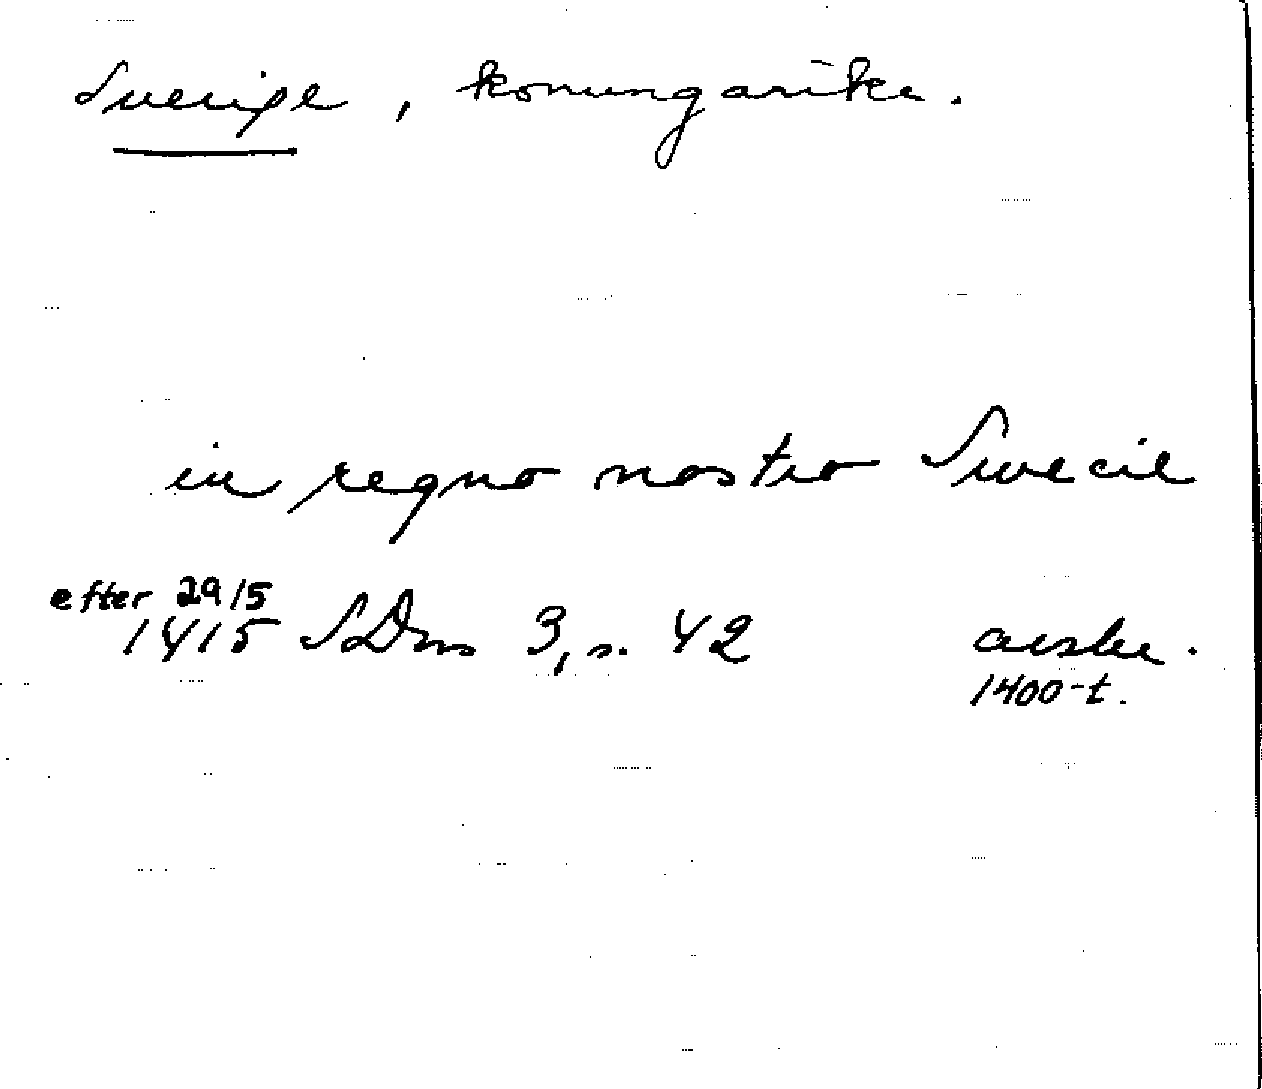 Sverige, konungarike.
in regno nostro Swecie
efter 29/5
1415 SDns 3, s. 42 avskr.
1400-t.